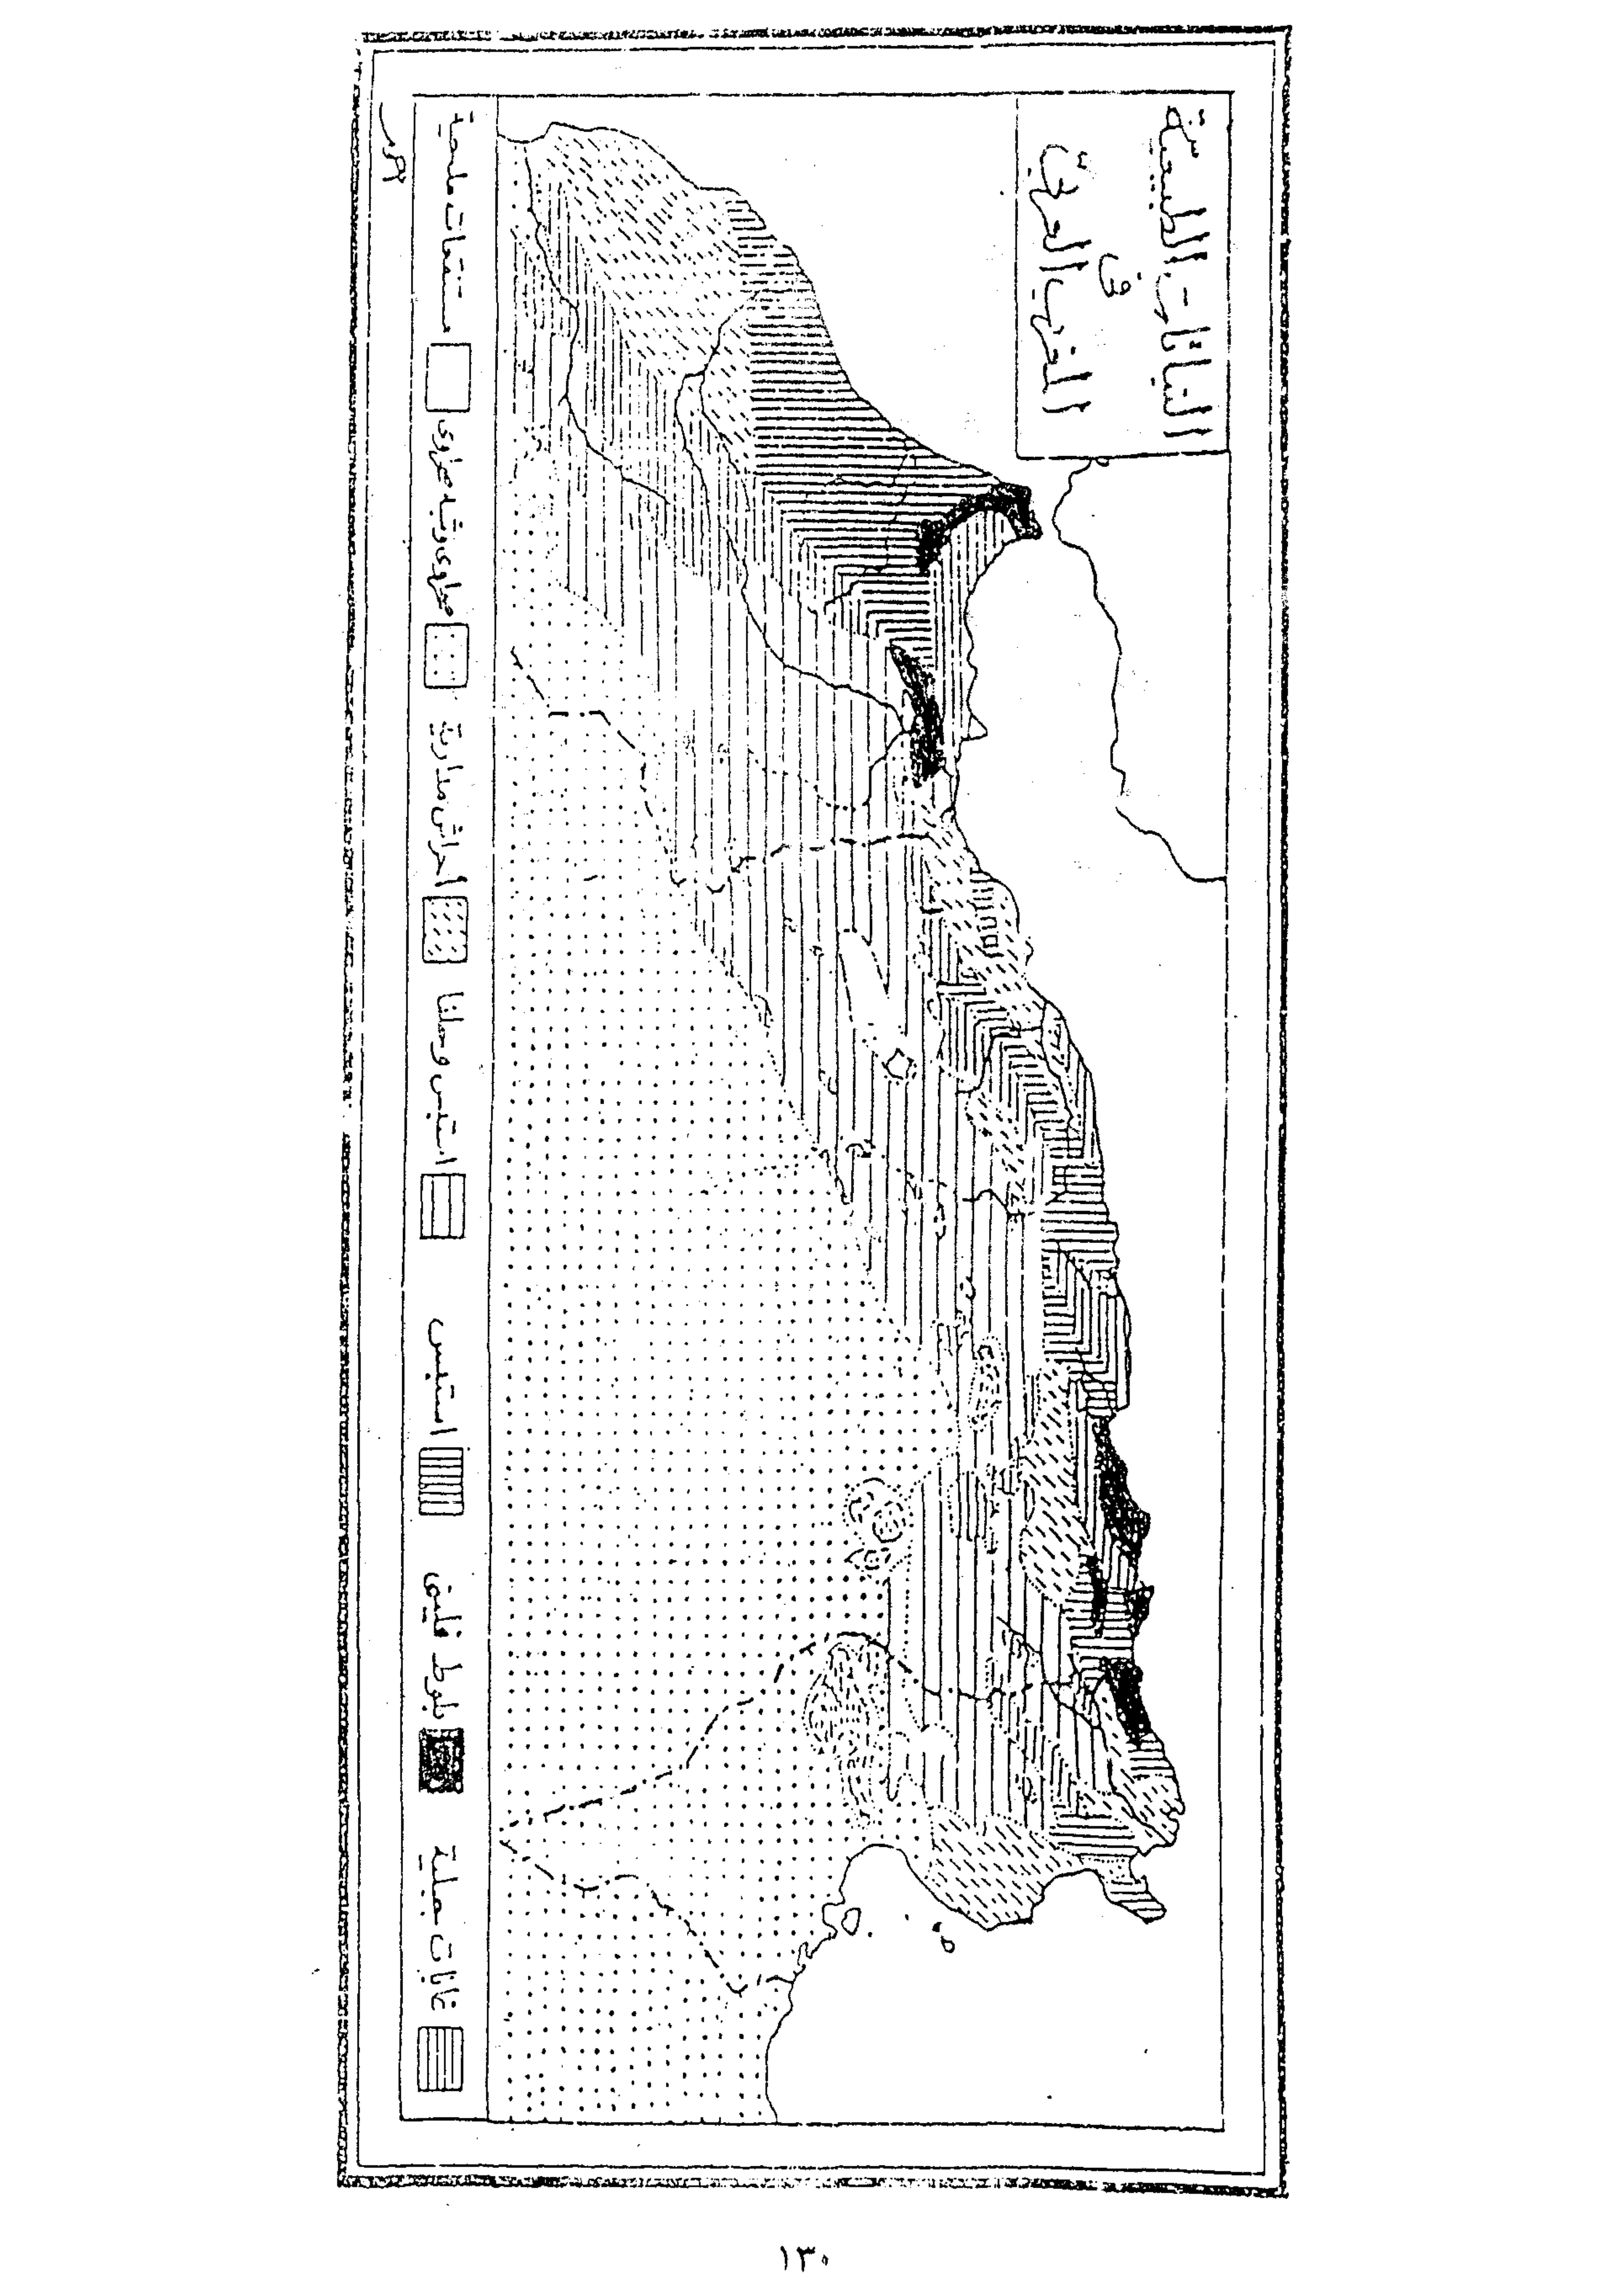 النباتات الطبيعيّة
في
المغرب العربي
غابات جبلية
بلوط فليني
استبس
استبس وحلفا
أحراش مدارية
صحراوى وشبه صحراوى
مستنقعات ملحية
١٣٠